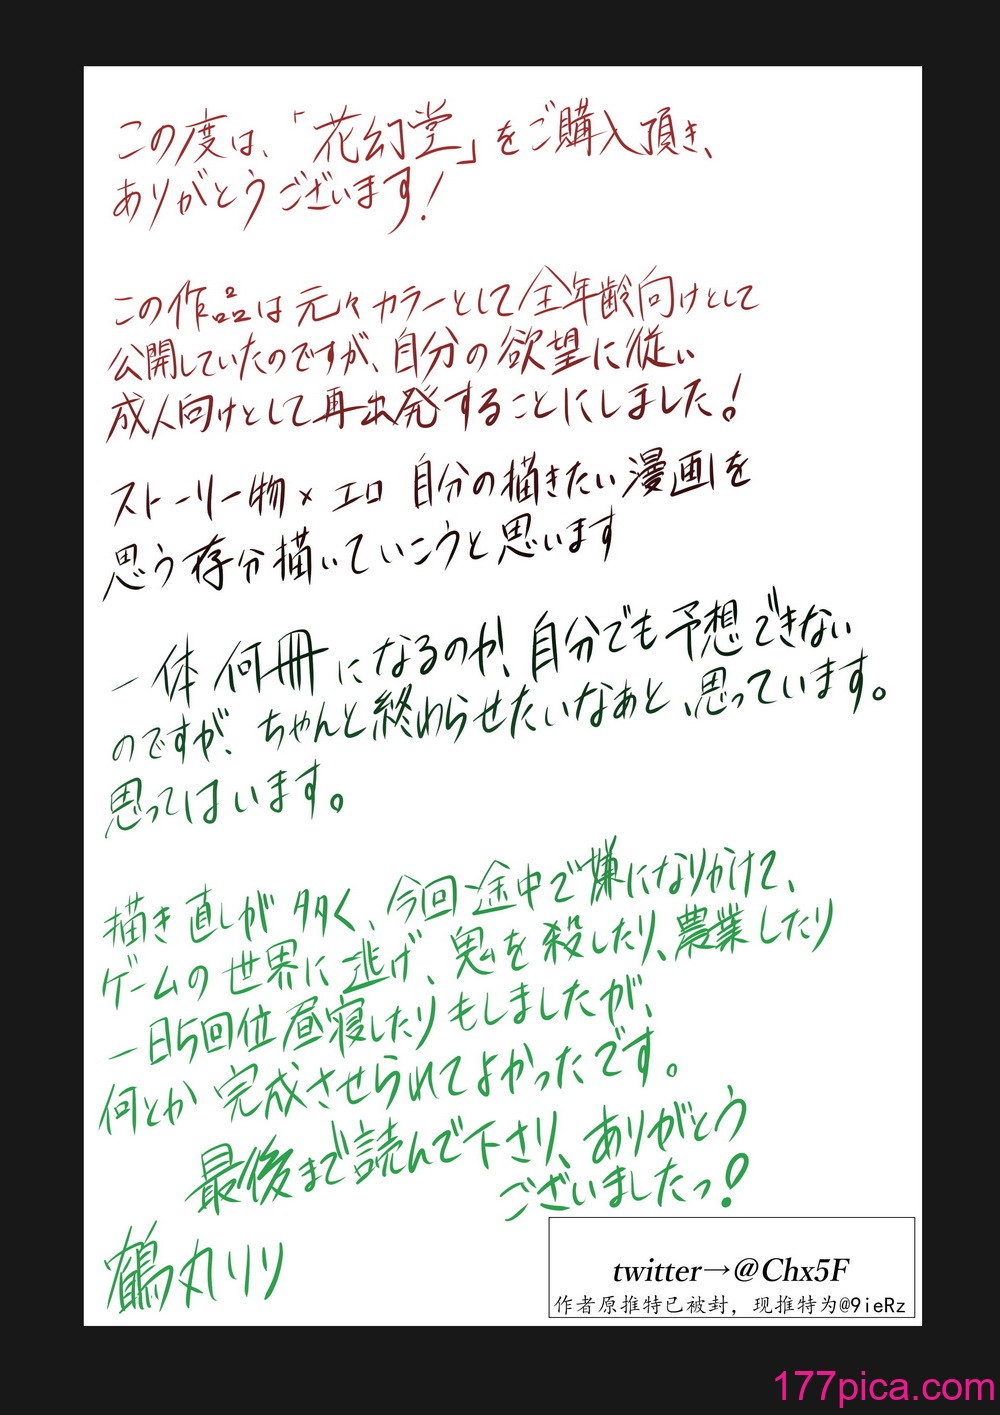 この度は、「花幻堂」をご購入頂き、
ありがとうございます！
この作品は元々カラーとして全年齢向けとして
公開していたのですが、自分の欲望に従い
成人向けとして再出発することにしました！
ストーリー物×エロ 自分の描きたい漫画を
思う存分描いていこうと思います
一体何冊になるのか、自分でも予想できない
のですが、ちゃんと終わらせたいなぁと、思っています。
思ってはいます。
描き直しが多く、今回途中で嫌になりかけて、
ゲームの世界に逃げ、鬼を殺したり、農業したり
一日5回位昼寝したりもしましたが、
何とか完成させられてよかったです。
最後まで読んで下さり、ありがとう
ございましたっ！
鶴丸リリ
twitter→@Chx5F
作者原推特已被封，现推特为@9ieRz
177pica.com